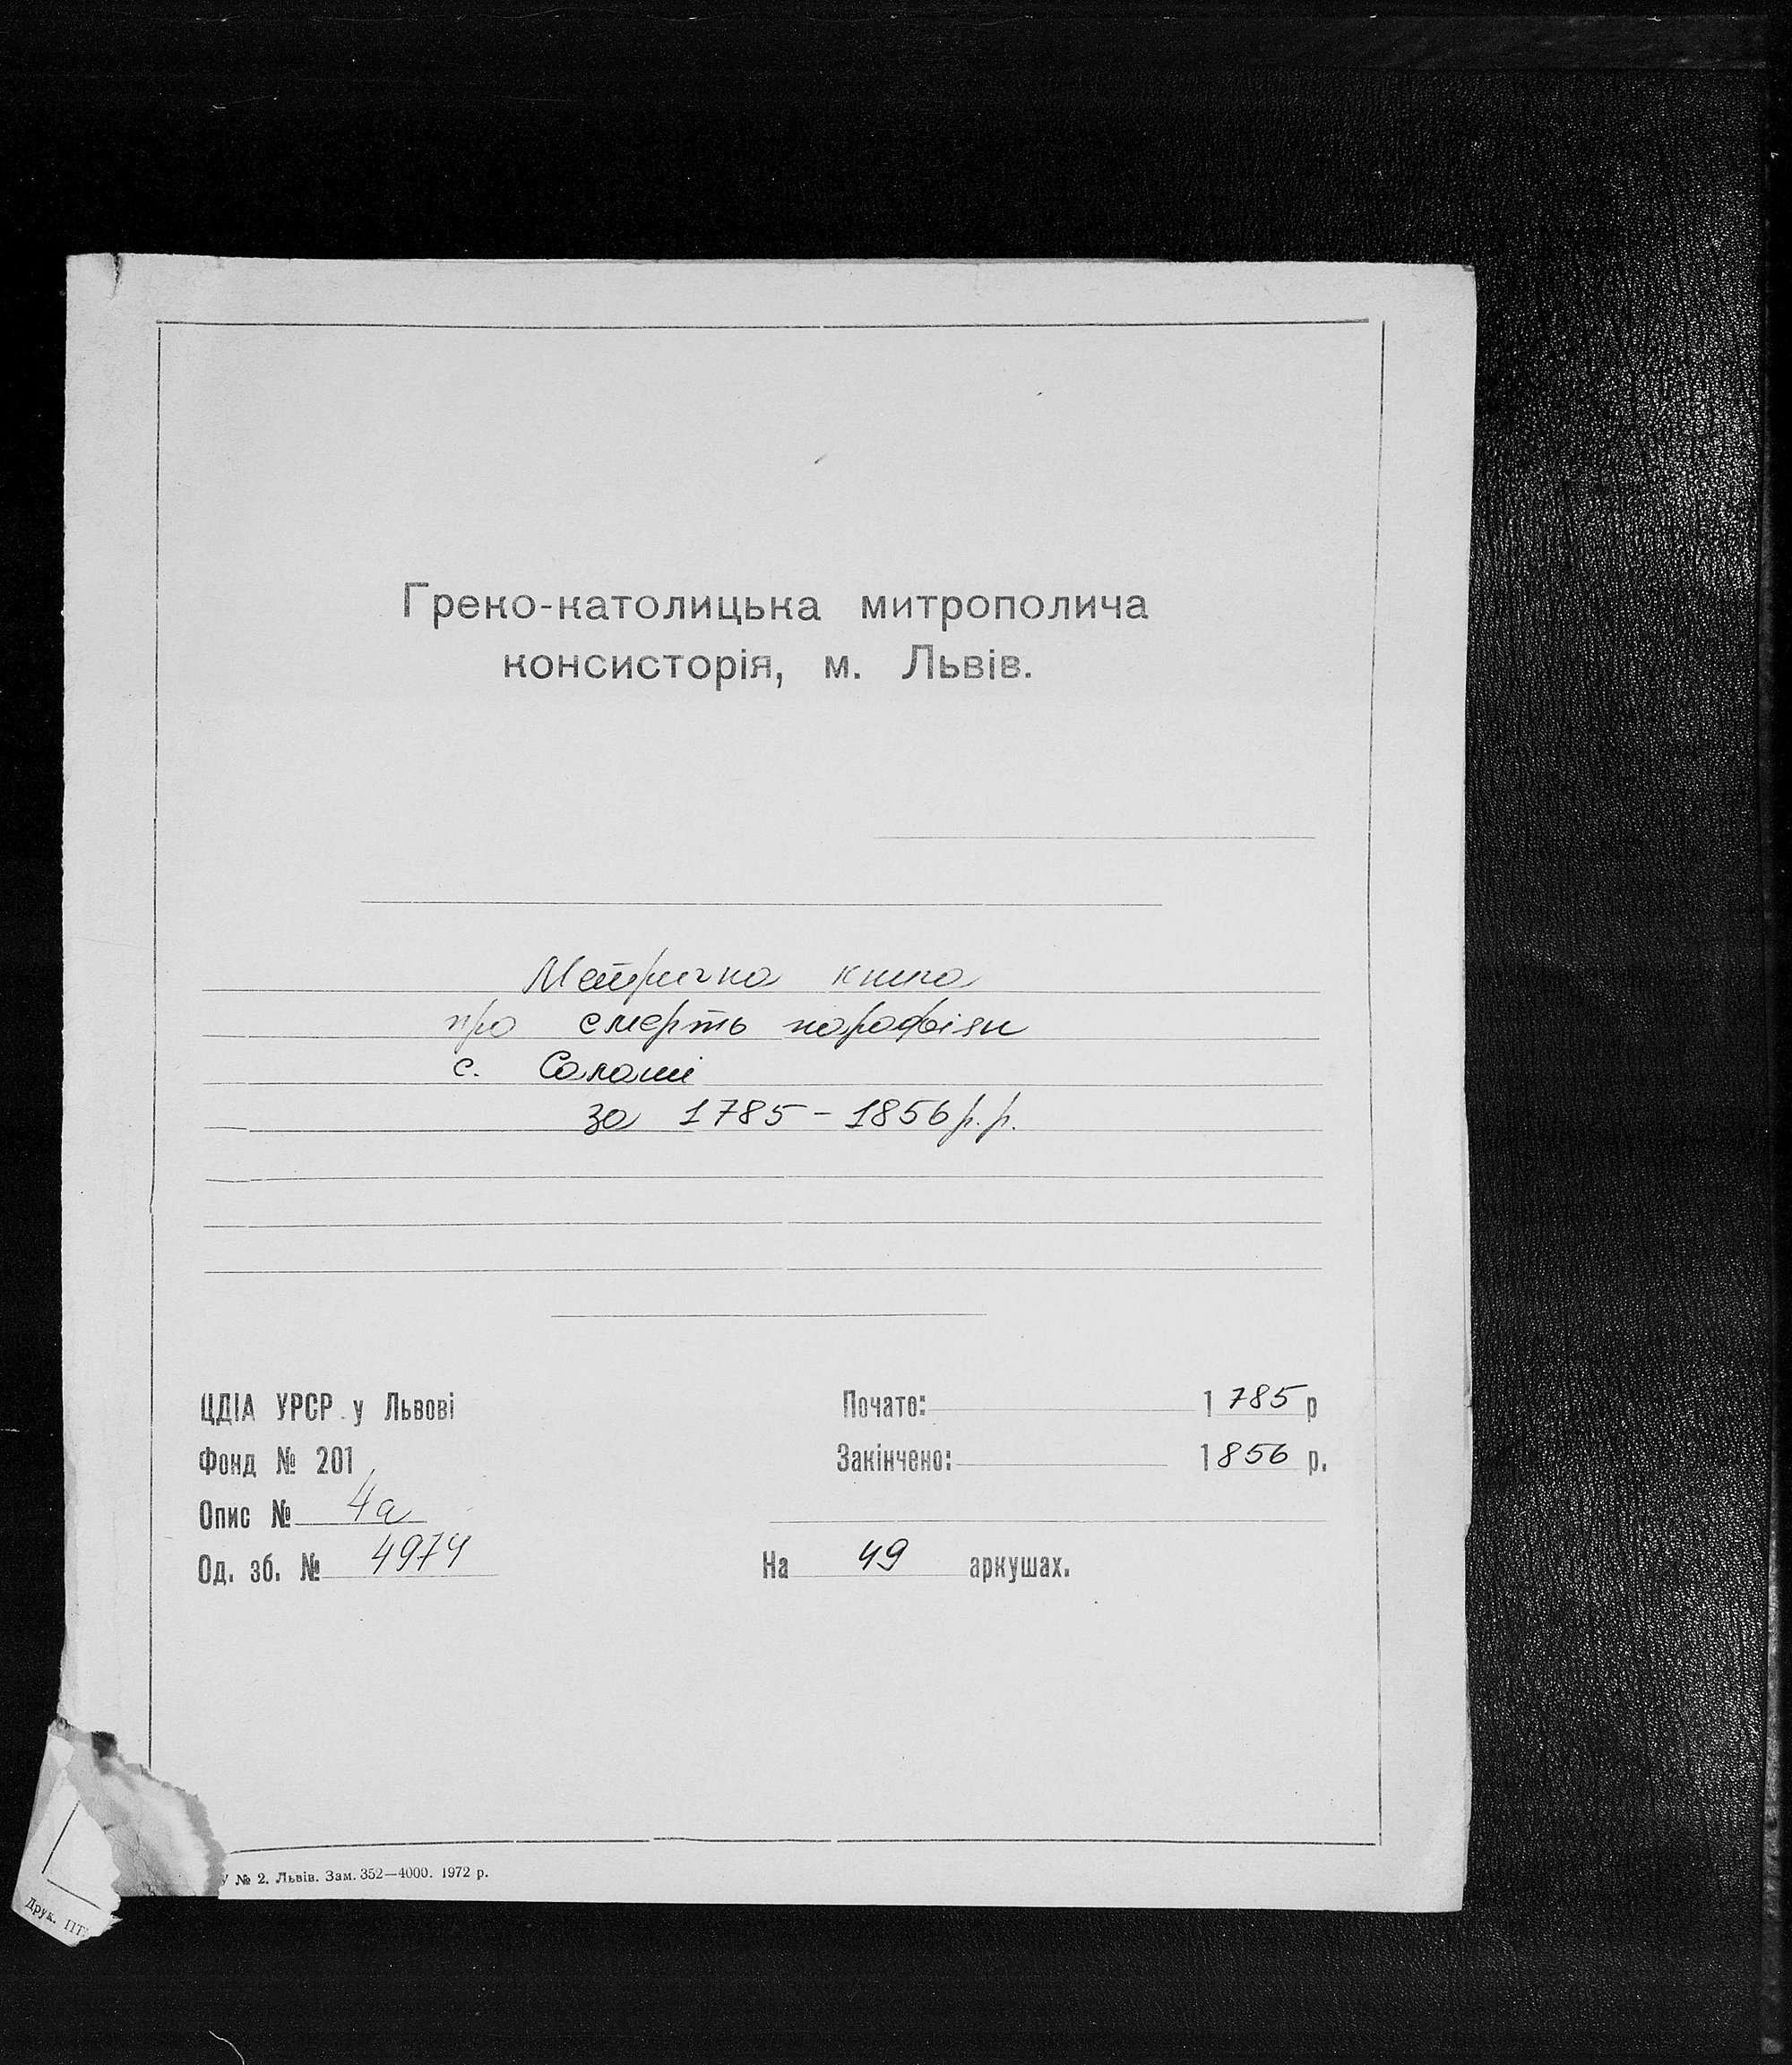 Греко-католицька митрополича
консисторія, м. Львів.
Метрична книга
про смерть парафіян
с. Салаші
за 1785 - 1856 р.р.
ЦДІА УРСР у Львові
Почато: 1785 р
Фонд № 201
Закінчено: 1856 р.
Опис № 4а
Од. зб. № 4974
На 49 аркушах.
У № 2. Львів. Зам. 352—4000. 1972 р.
Друк. ПТ